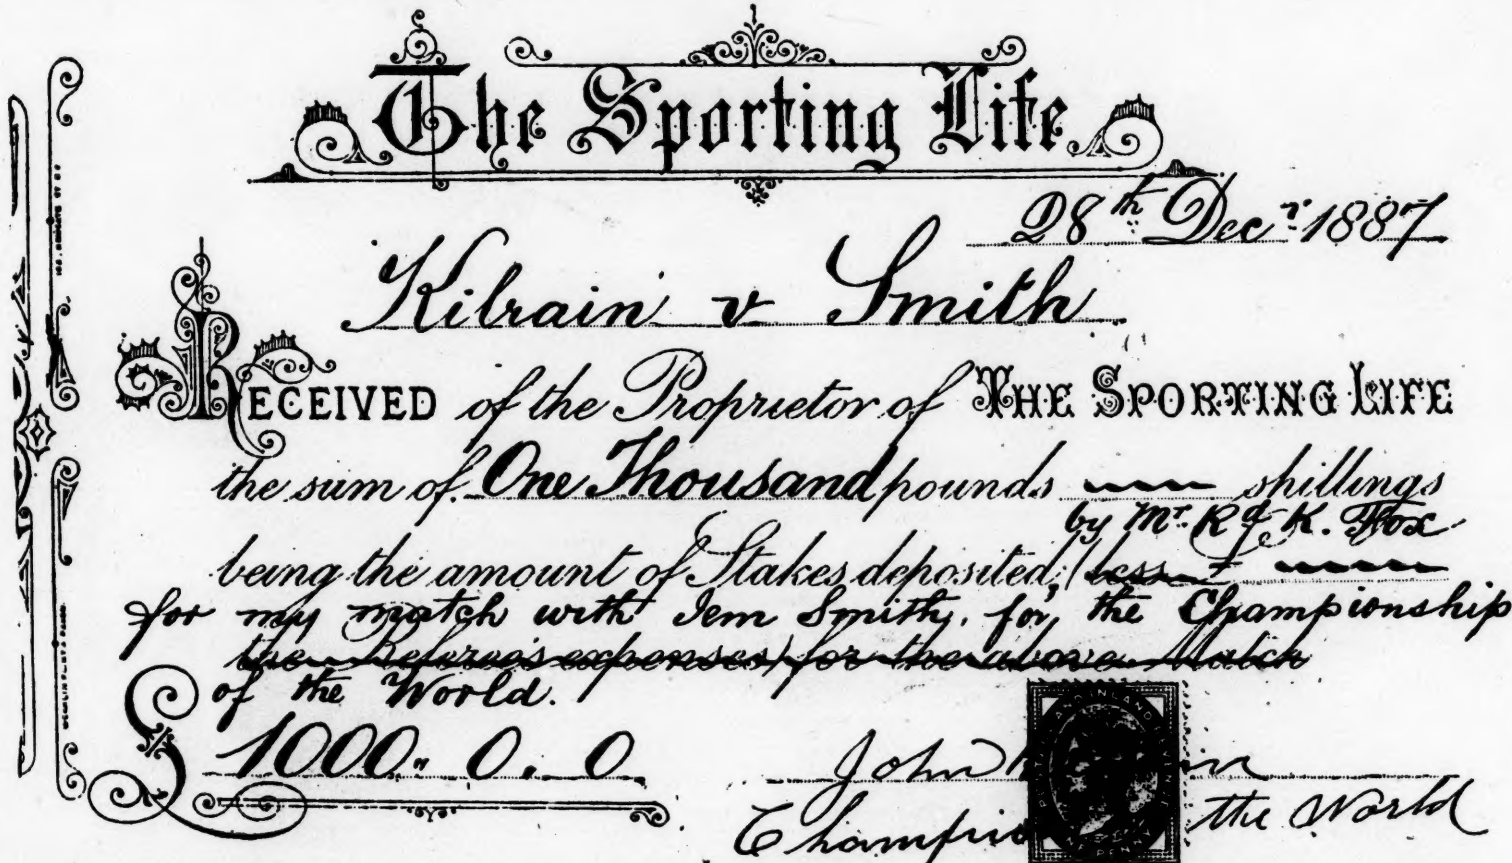 The Sporting Life
28th Decr. 1887
Kilrain v Smith
RECEIVED of the Proprietor of THE SPORTING LIFE
the sum of One Thousand pounds shillings
by Mr. Rd. K. Fox
being the amount of Stakes deposited, (less £
for my match with Jem Smith, for the Championship
the Referee's expenses) for the above Match
of the World.
£ 1000. 0. 0.
John
Champio the World